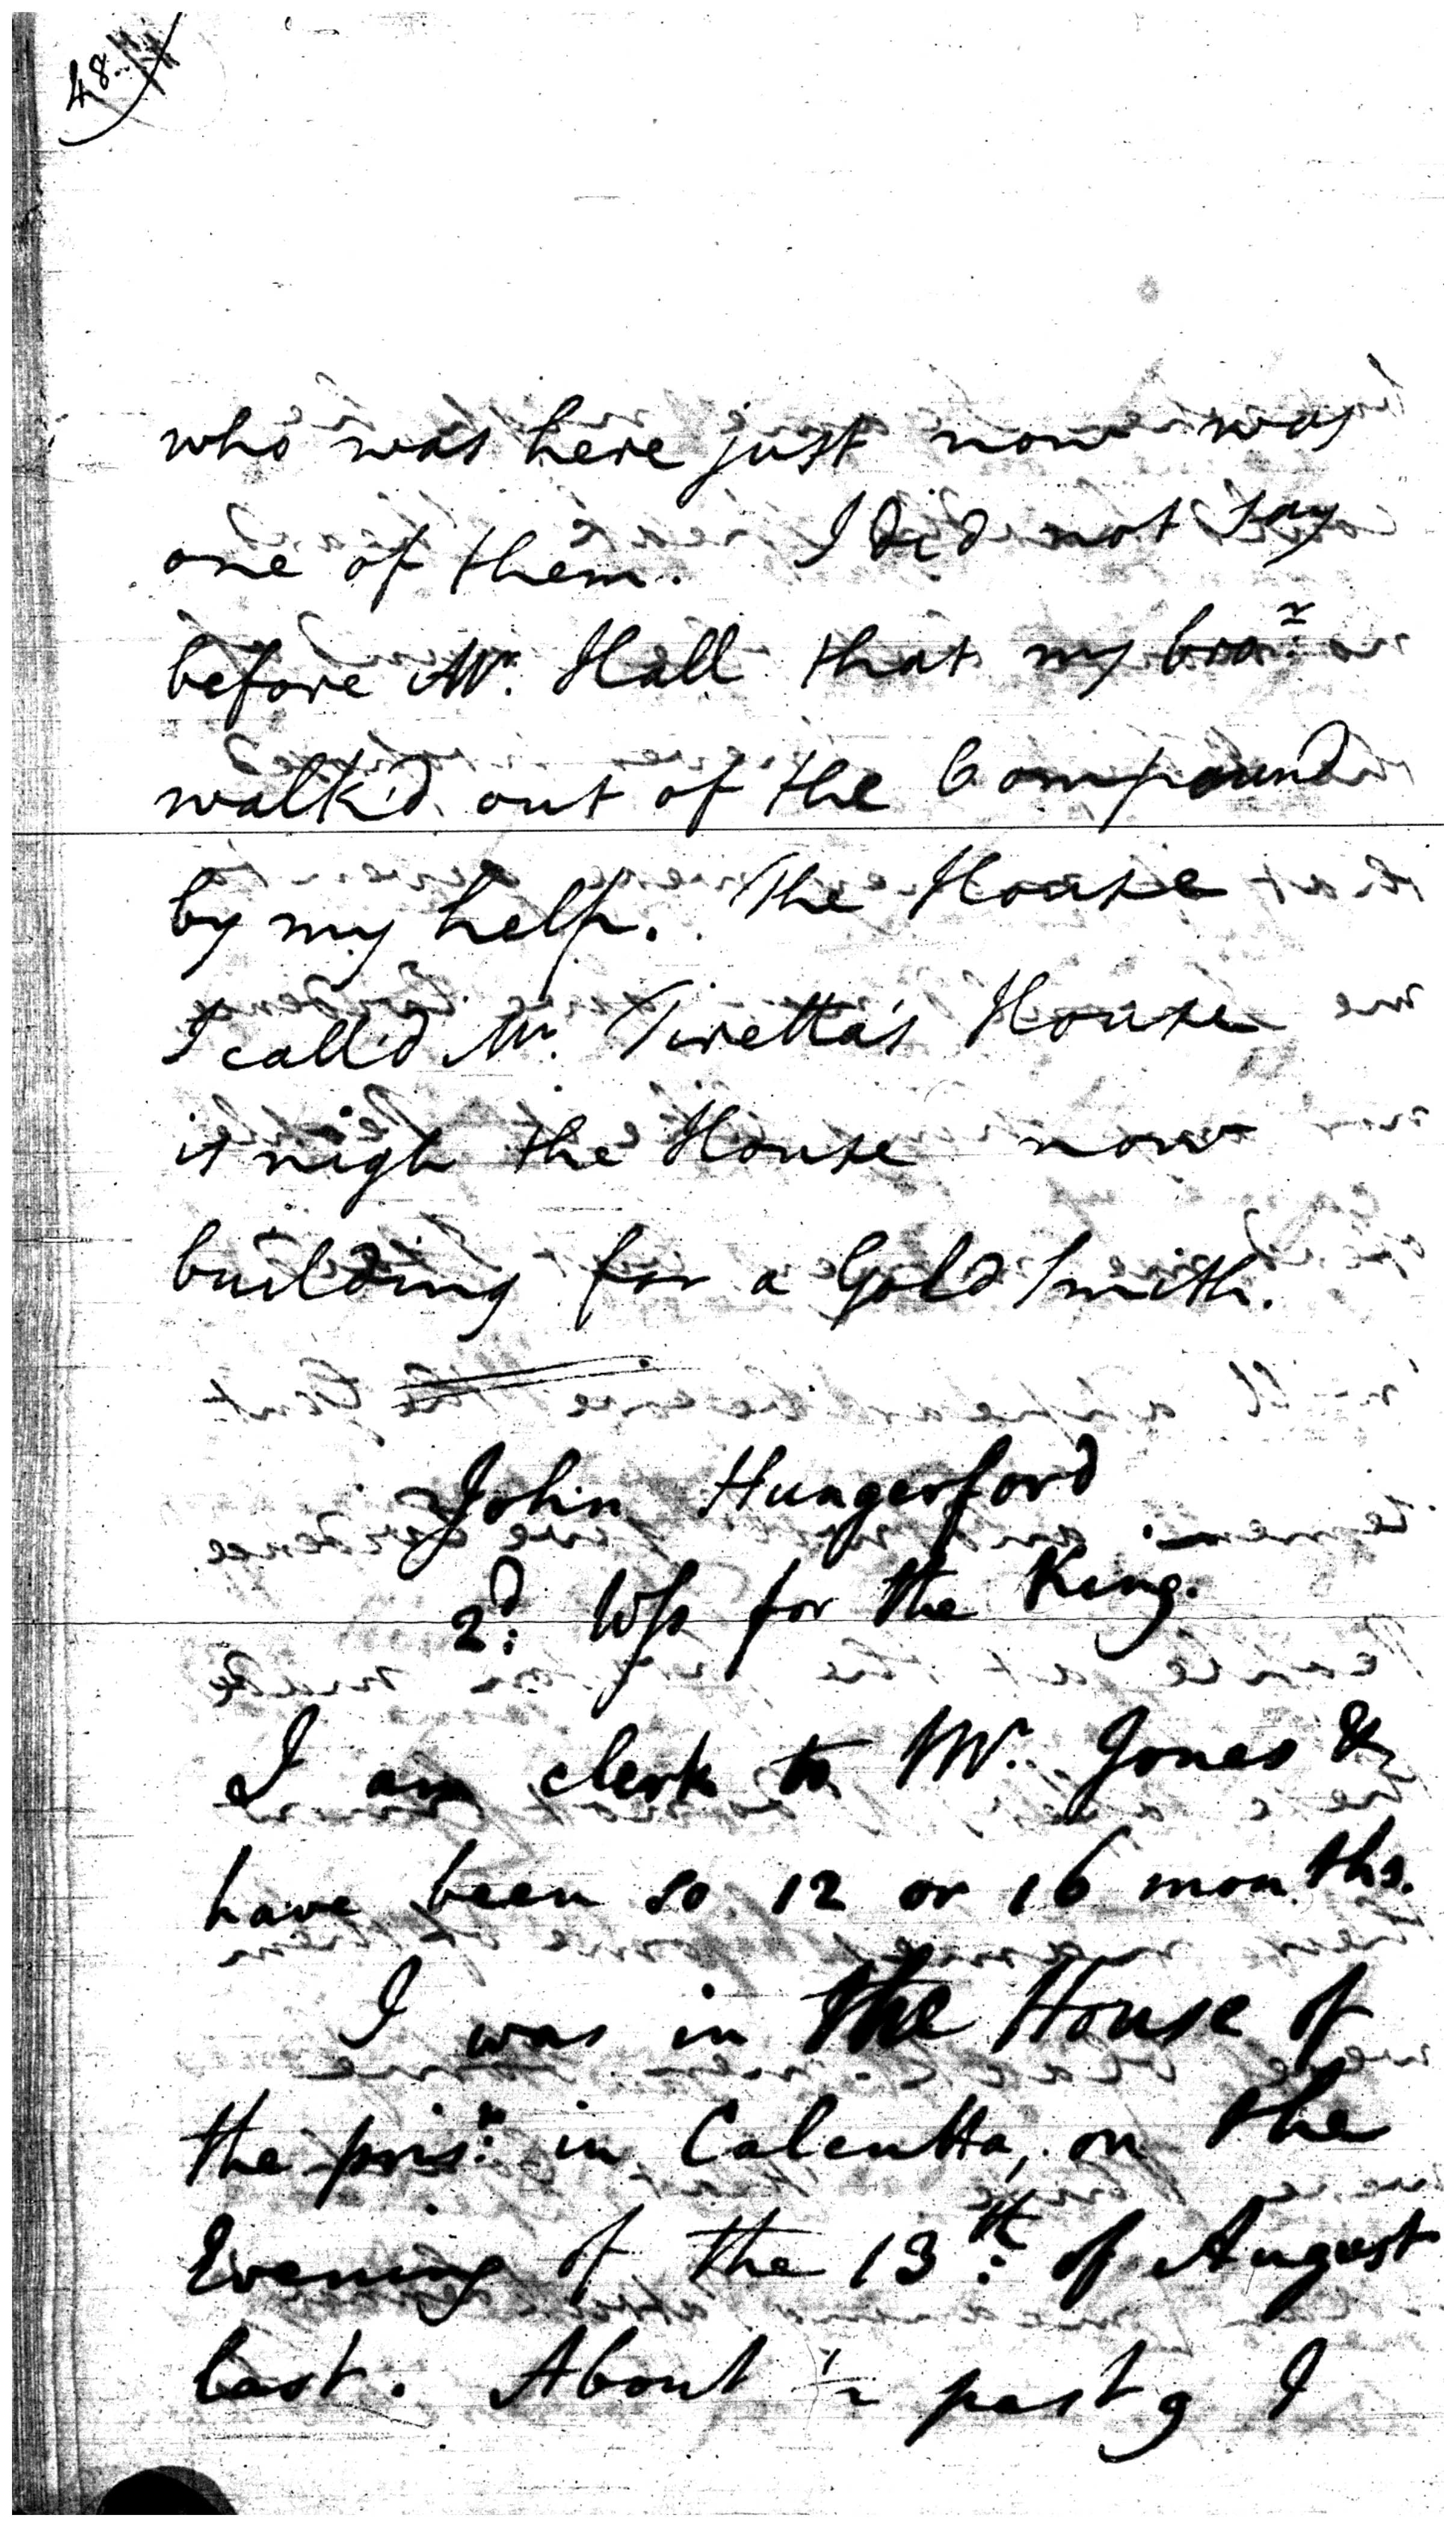 48
who was here just now was
one of them. I did not say
before Mr. Hall that my bro.r
walk'd out of the Compound
by my help. The House
I call'd Mr. Tiretta's House
is nigh the House now
building for a Gold Smith.
John Hungerford
2d. Wss for the King.
I am clerk to Mr. Jones &
have been so 12 or 16 months.
I was in the House of
the pris.r in Calcutta, on the
Evening of the 13th. of August
last. About 1/2 past 9 I